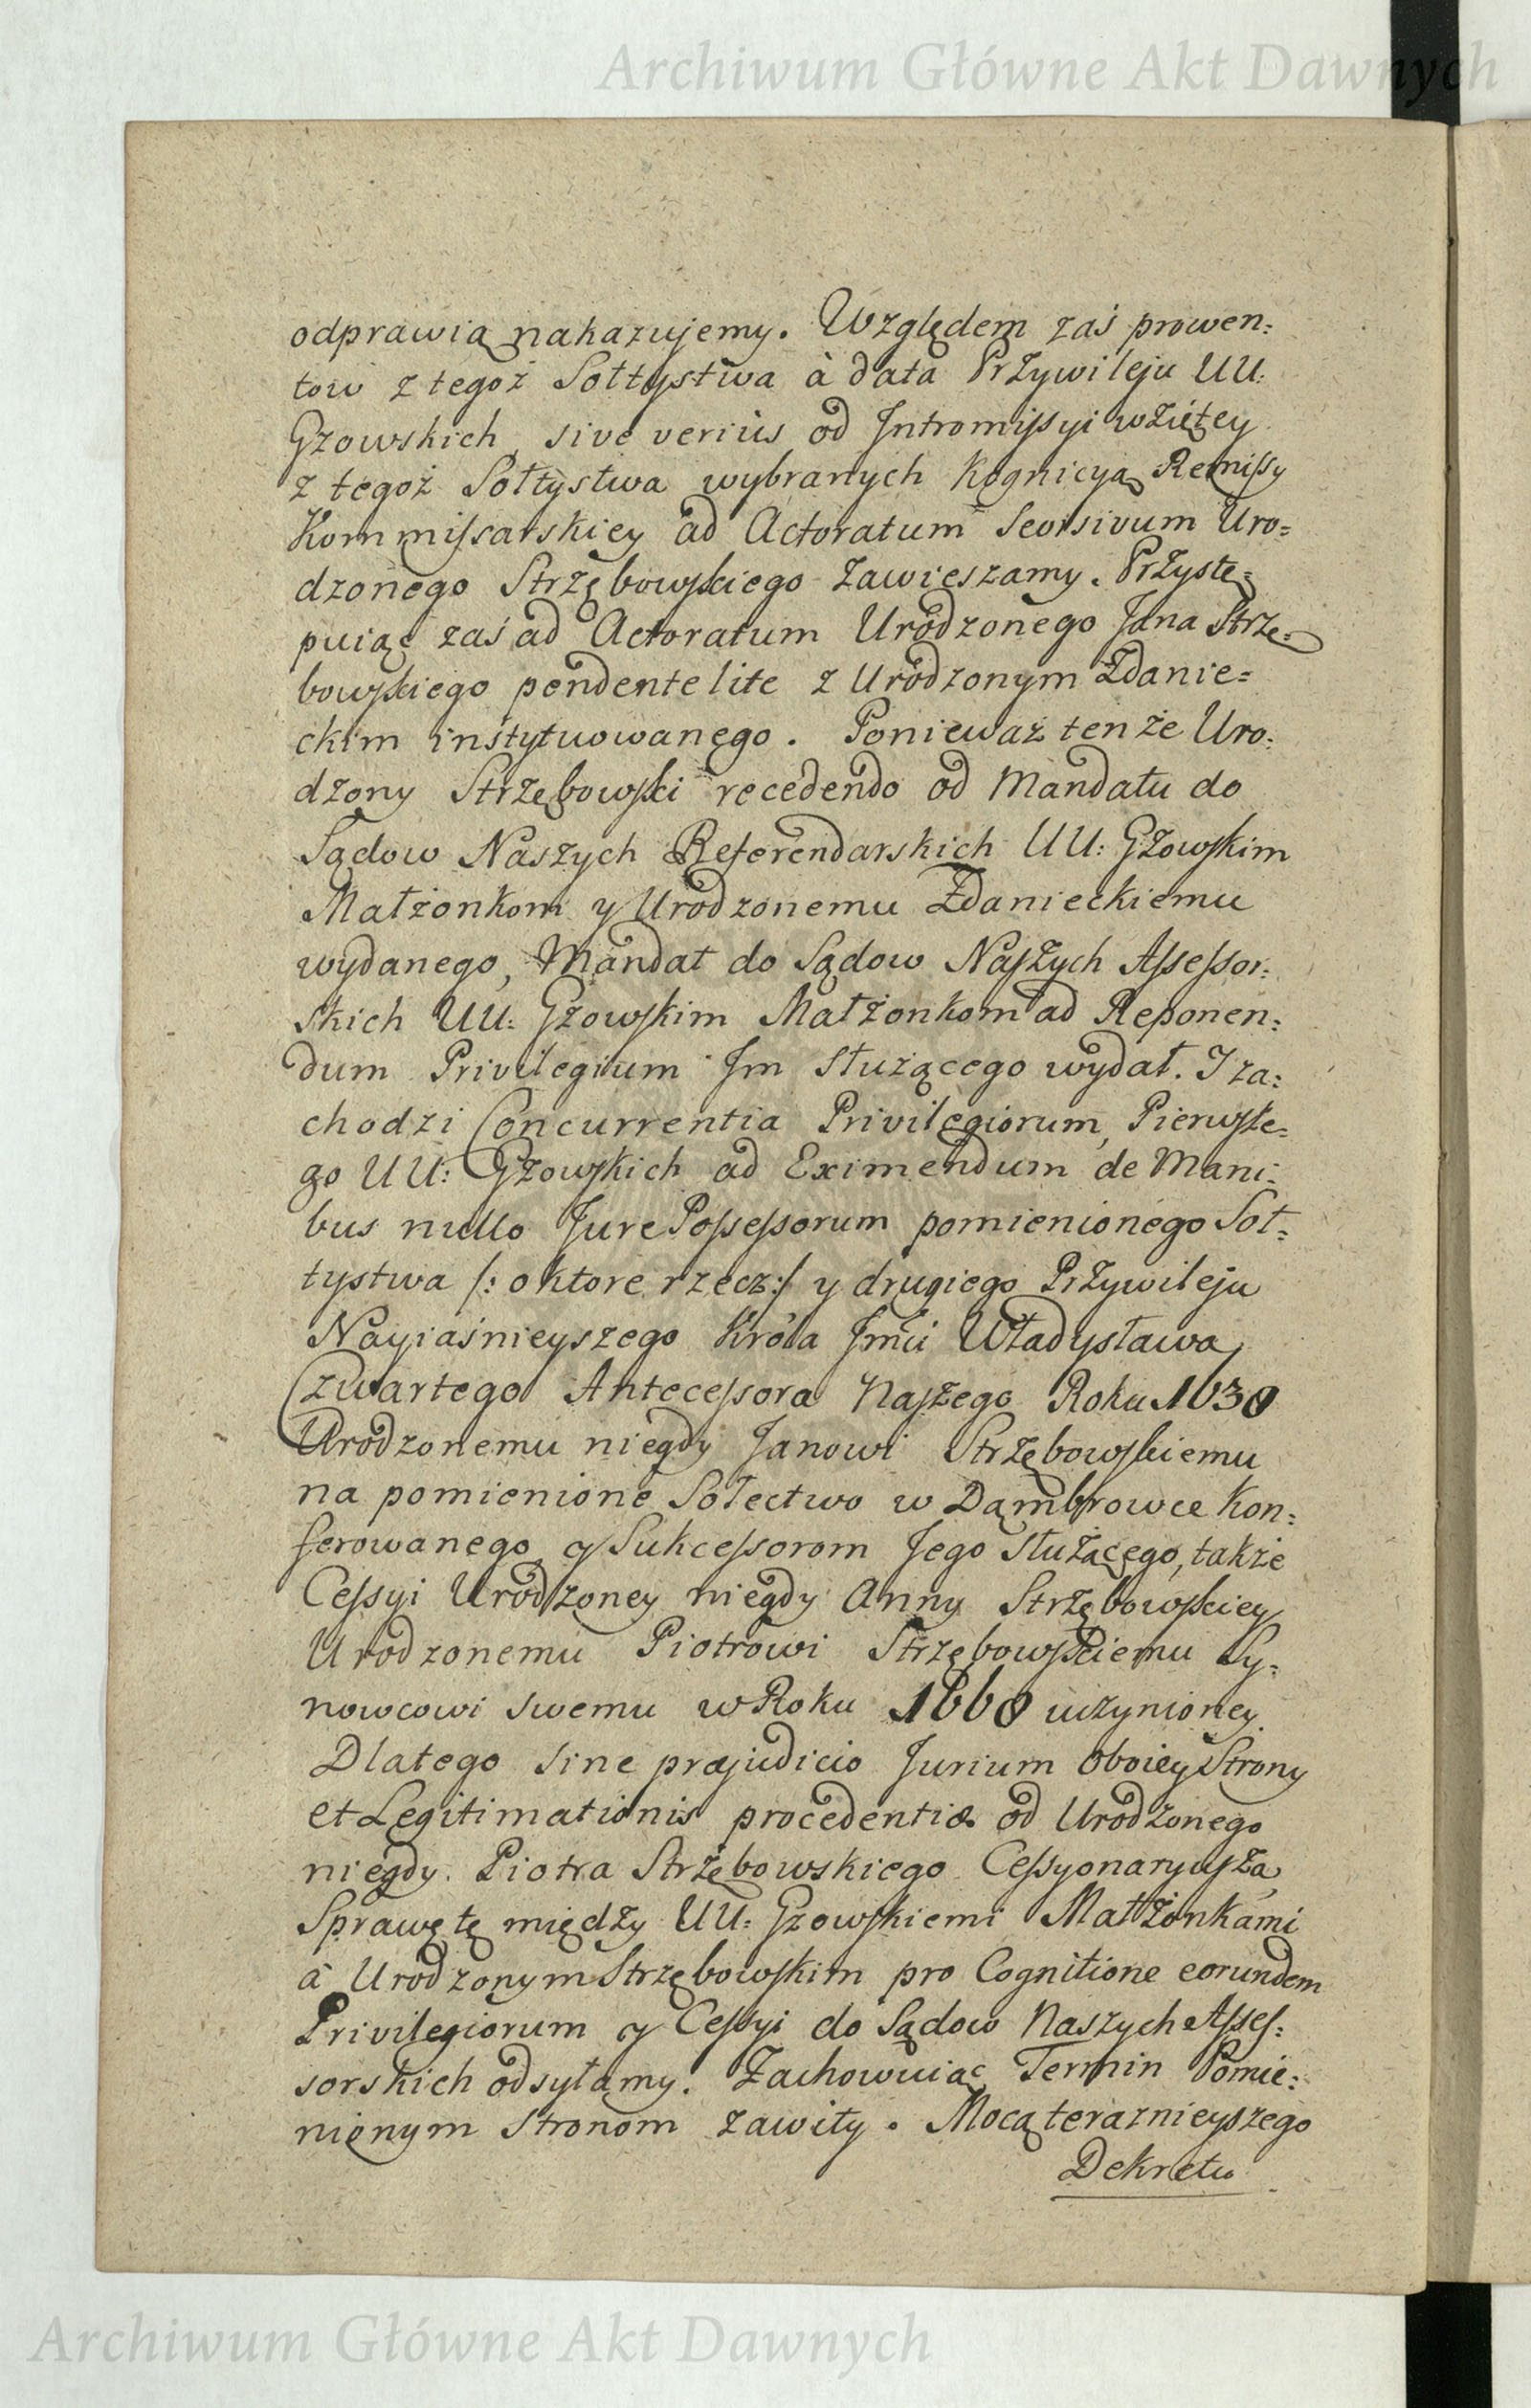 Archiwum Główne Akt Dawnych
odprawią nakazujemy. Względem zaś prowen:
tow z tegoż Sołtystwa à data Przywileju UU:
Gzowskich, sive veriùs od Intromissyi wziętey
z tegoż Sołtystwa wybranych kognicyą Remissy
Kommissarskiey ad Actoratum seorsivum Uro=
dzonego Strzębowskiego zawieszamy. Przystę=
puiąc zaś ad Actoratum Urodzonego Jana Strzę=
bowskiego pendente lite z Urodzonym Zdanie=
ckim instytuowanego. Ponieważ tenże Uro:
dzony Strzębowski recedendo od Mandatu do
Sądow Naszych Referendarskich UU: Gzowskim
Małżonkom y Urodzonemu Zdanieckiemu
wydanego, Mandat do Sądow Naszych Assessor:
skich UU: Gzowskim Małżonkom ad Reponen:
dum Privilegium Im służącego wydał. I za:
chodzi Concurrentia Privilegiorum, Pierwsze=
go UU: Gzowskich ad Eximendum de Mani:
bus nullo Jure Possessorum pomienionego Soł=
tystwa /: o ktore rzecz :/ y drugiego Przywileju
Nayiaśnieyszego Króla Jmći Władysława
Czwartego Antecessora Naszego Roku 1630
Urodzonemu niegdy Janowi Strzębowskiemu
na pomienione Sołectwo w Dąmbrowce kon:
ferowanego, y Sukcessorom Jego służącego, także
Cessyi Urodzoney niegdy Anny Strzębowskiey
Urodzonemu Piotrowi Strzębowskiemu Sy=
nowcowi swemu w Roku 1660 uczynioney.
Dlatego sine præjudicio Jurium oboiey Strony
et Legitimationis procedentiæ od Urodzonego
niegdy Piotra Strzębowskiego Cessyonaryusza,
Sprawę tę między UU: Gzowskiemi Małżonkami
à Urodzonym Strzębowskim pro Cognitione eorundem
Privilegiorum y Cessyi do Sądow Naszych Asses:
sorskich odsyłamy. Zachowuiąc Termin Pomie:
nionym stronom zawity. Mocą teraznieyszego
Dekretu
Archiwum Główne Akt Dawnych